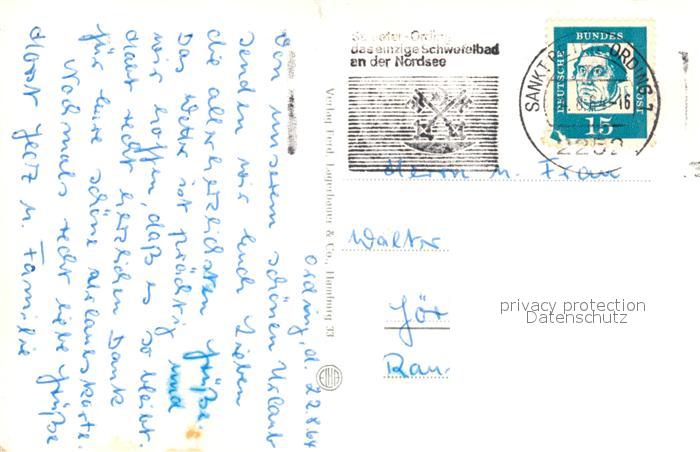 Ording, d. 22.8.64
Von unserem schönen Urlaub
senden wir Euch Lieben
die allerherzlichsten Grüße.
Das Wetter ist prächtig und
wir hoffen, daß es so bleibt.
Habt recht herzlichen Dank
für Eure schöne Urlaubskarte.
Nochmals recht liebe Grüße
Horst u. Familie
Verlag Ferd. Lagerbauer & Co., Hamburg 33
St. Peter-Ording
das einzige Schwefelbad
an der Nordsee
SANKT ORDING 1
-16
2252
DEUTSCHE BUNDESPOST
15
Herrn u. Frau
Walter
privacy protection
Datenschutz